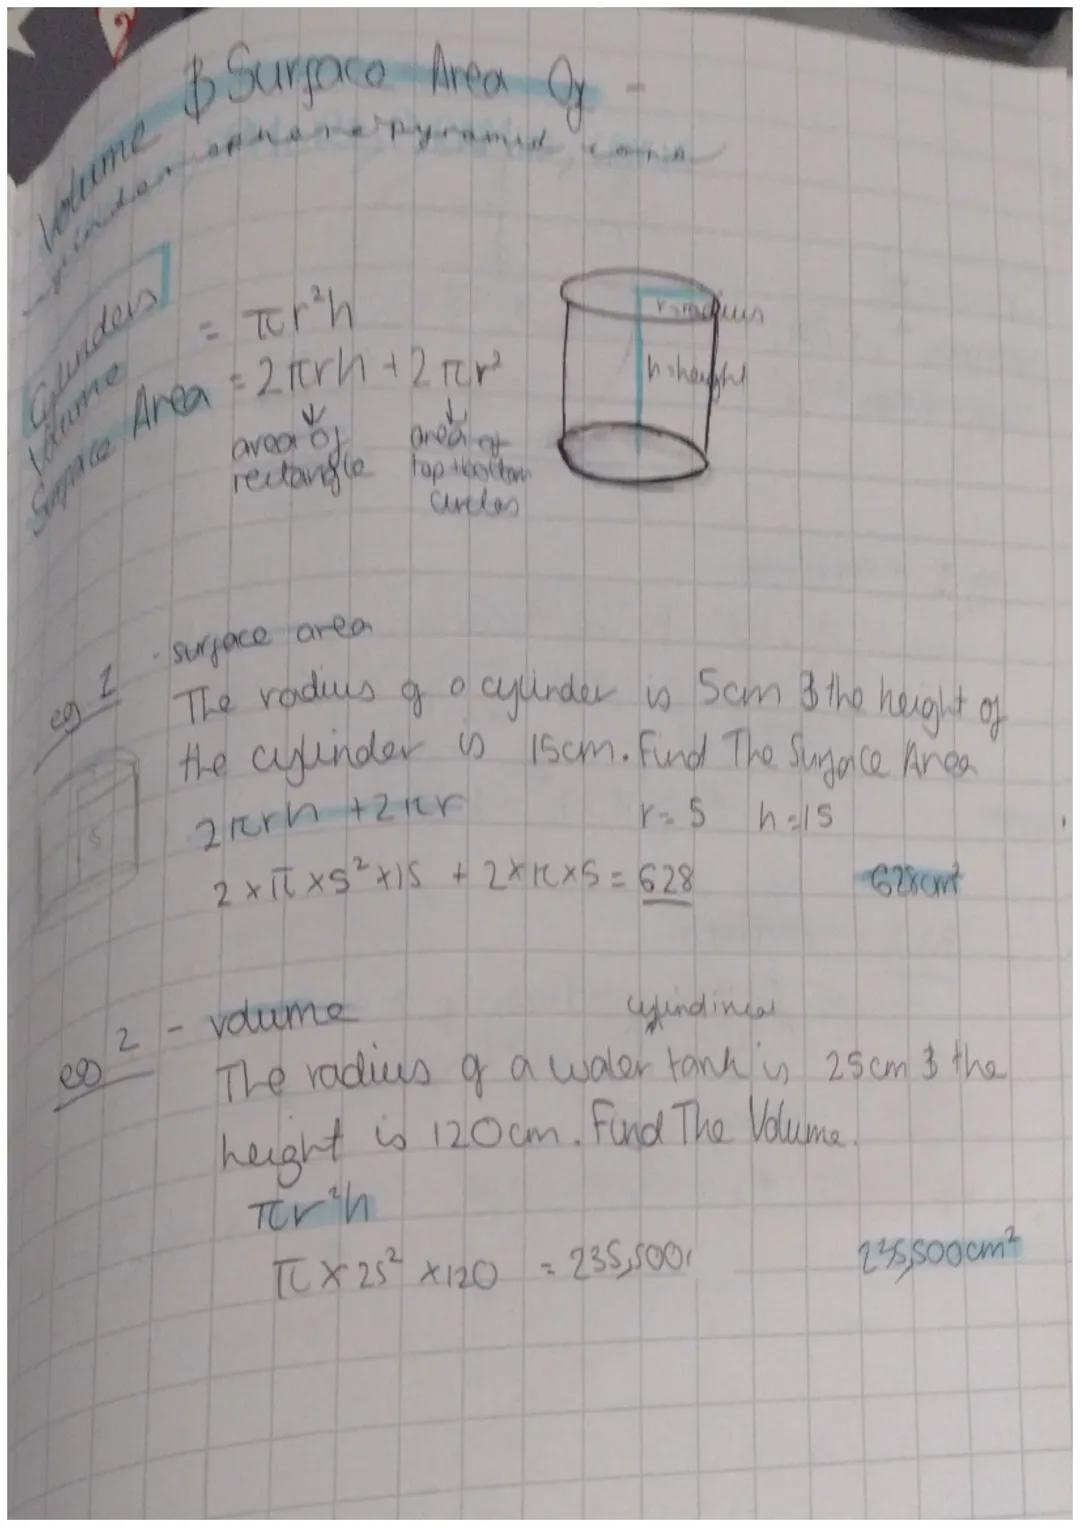 Volume & Surface Area Of -
- cylinder sphere pyramid cone
Cylinders
Volume = πr²h
Surface Area = 2πrh + 2πr²
area of rectangle
area of top + bottom circles
r=radius
h=height
eg 1 - surface area
The radius of a cylinder is 5cm & the height of
the cylinder is 15cm. Find The Surface Area
2πrh + 2πr r=5 h=15
15
2×π×5²×15 + 2×π×5 = 628 628cm²
eg 2 - volume
cylindrical
The radius of a water tank is 25cm & the
height is 120cm. Find The Volume.
πr²h
π×25²×120 = 235,500 235,500cm²